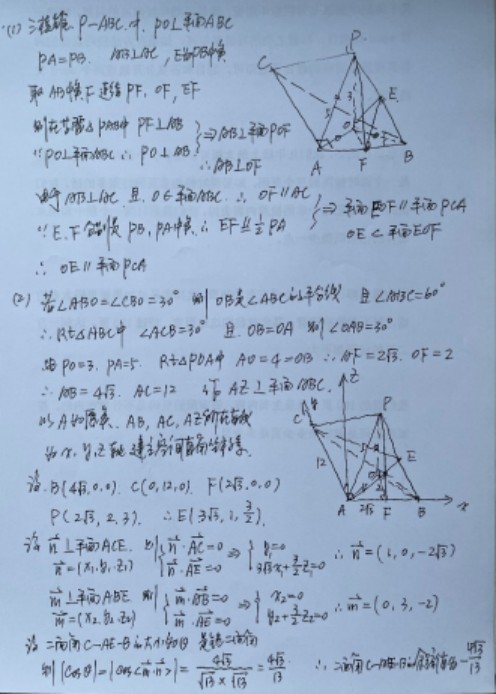 (1) 三棱锥 P-ABC 中, PO⊥平面ABC
PA=PB. AB⊥AC, E为PB中点
取AB中点F 连结 PF, OF, EF
则在等腰△PAB中 PF⊥AB
∵PO⊥平面ABC ∴ PO⊥AB } ⇒ AB⊥平面POF
∴ AB⊥OF
由于 AB⊥AC 且 O∈平面ABC. ∴ OF∥AC
∵ E、F分别是 PB, PA中点 ∴ EF∥½PA } ⇒ 平面EOF∥平面PCA
OE⊂平面EOF
∴ OE∥平面PCA
P
C
E
O
A
F
B
(2) 若∠ABO=∠CBO=30° 则OB是∠ABC的平分线 且∠ABC=60°
∴ Rt△ABC中 ∠ACB=30° 且 OB=OA 则∠OAB=30°
由PO=3. PA=5. Rt△POA中 AO=4=OB ∴ AF=2√3. OF=2
∴ AB=4√3. AC=12 作AZ⊥平面ABC.
以A为原点, AB, AC, AZ所在直线
为x, y, z轴 建立空间直角坐标系.
设 B(4√3,0,0). C(0,12,0). F(2√3,0,0)
P(2√3, 2, 3). ∴ E(3√3, 1, 3/2).
z
y
C
P
E
12
A
2√3
F
B
x
设 n⊥平面ACE. 则 { n·AC=0 ⇒ { y₁=0 ∴ n=(1, 0, -2√3)
n=(x₁,y₁,z₁) { n·AE=0 { 3√3x₁+3/2z₁=0
m⊥平面ABE 则 { m·AB=0 ⇒ { x₂=0 ∴ m=(0, 3, -2)
m=(x₂,y₂,z₂) { m·AE=0 { y₂+3/2z₂=0
设二面角C-AE-B的大小为θ 是钝二面角
则 |cosθ|=|cos<m·n>|= 4√3/(√13×√13) = 4√3/13 ∴ 二面角C-AE-B的余弦值为-4√3/13